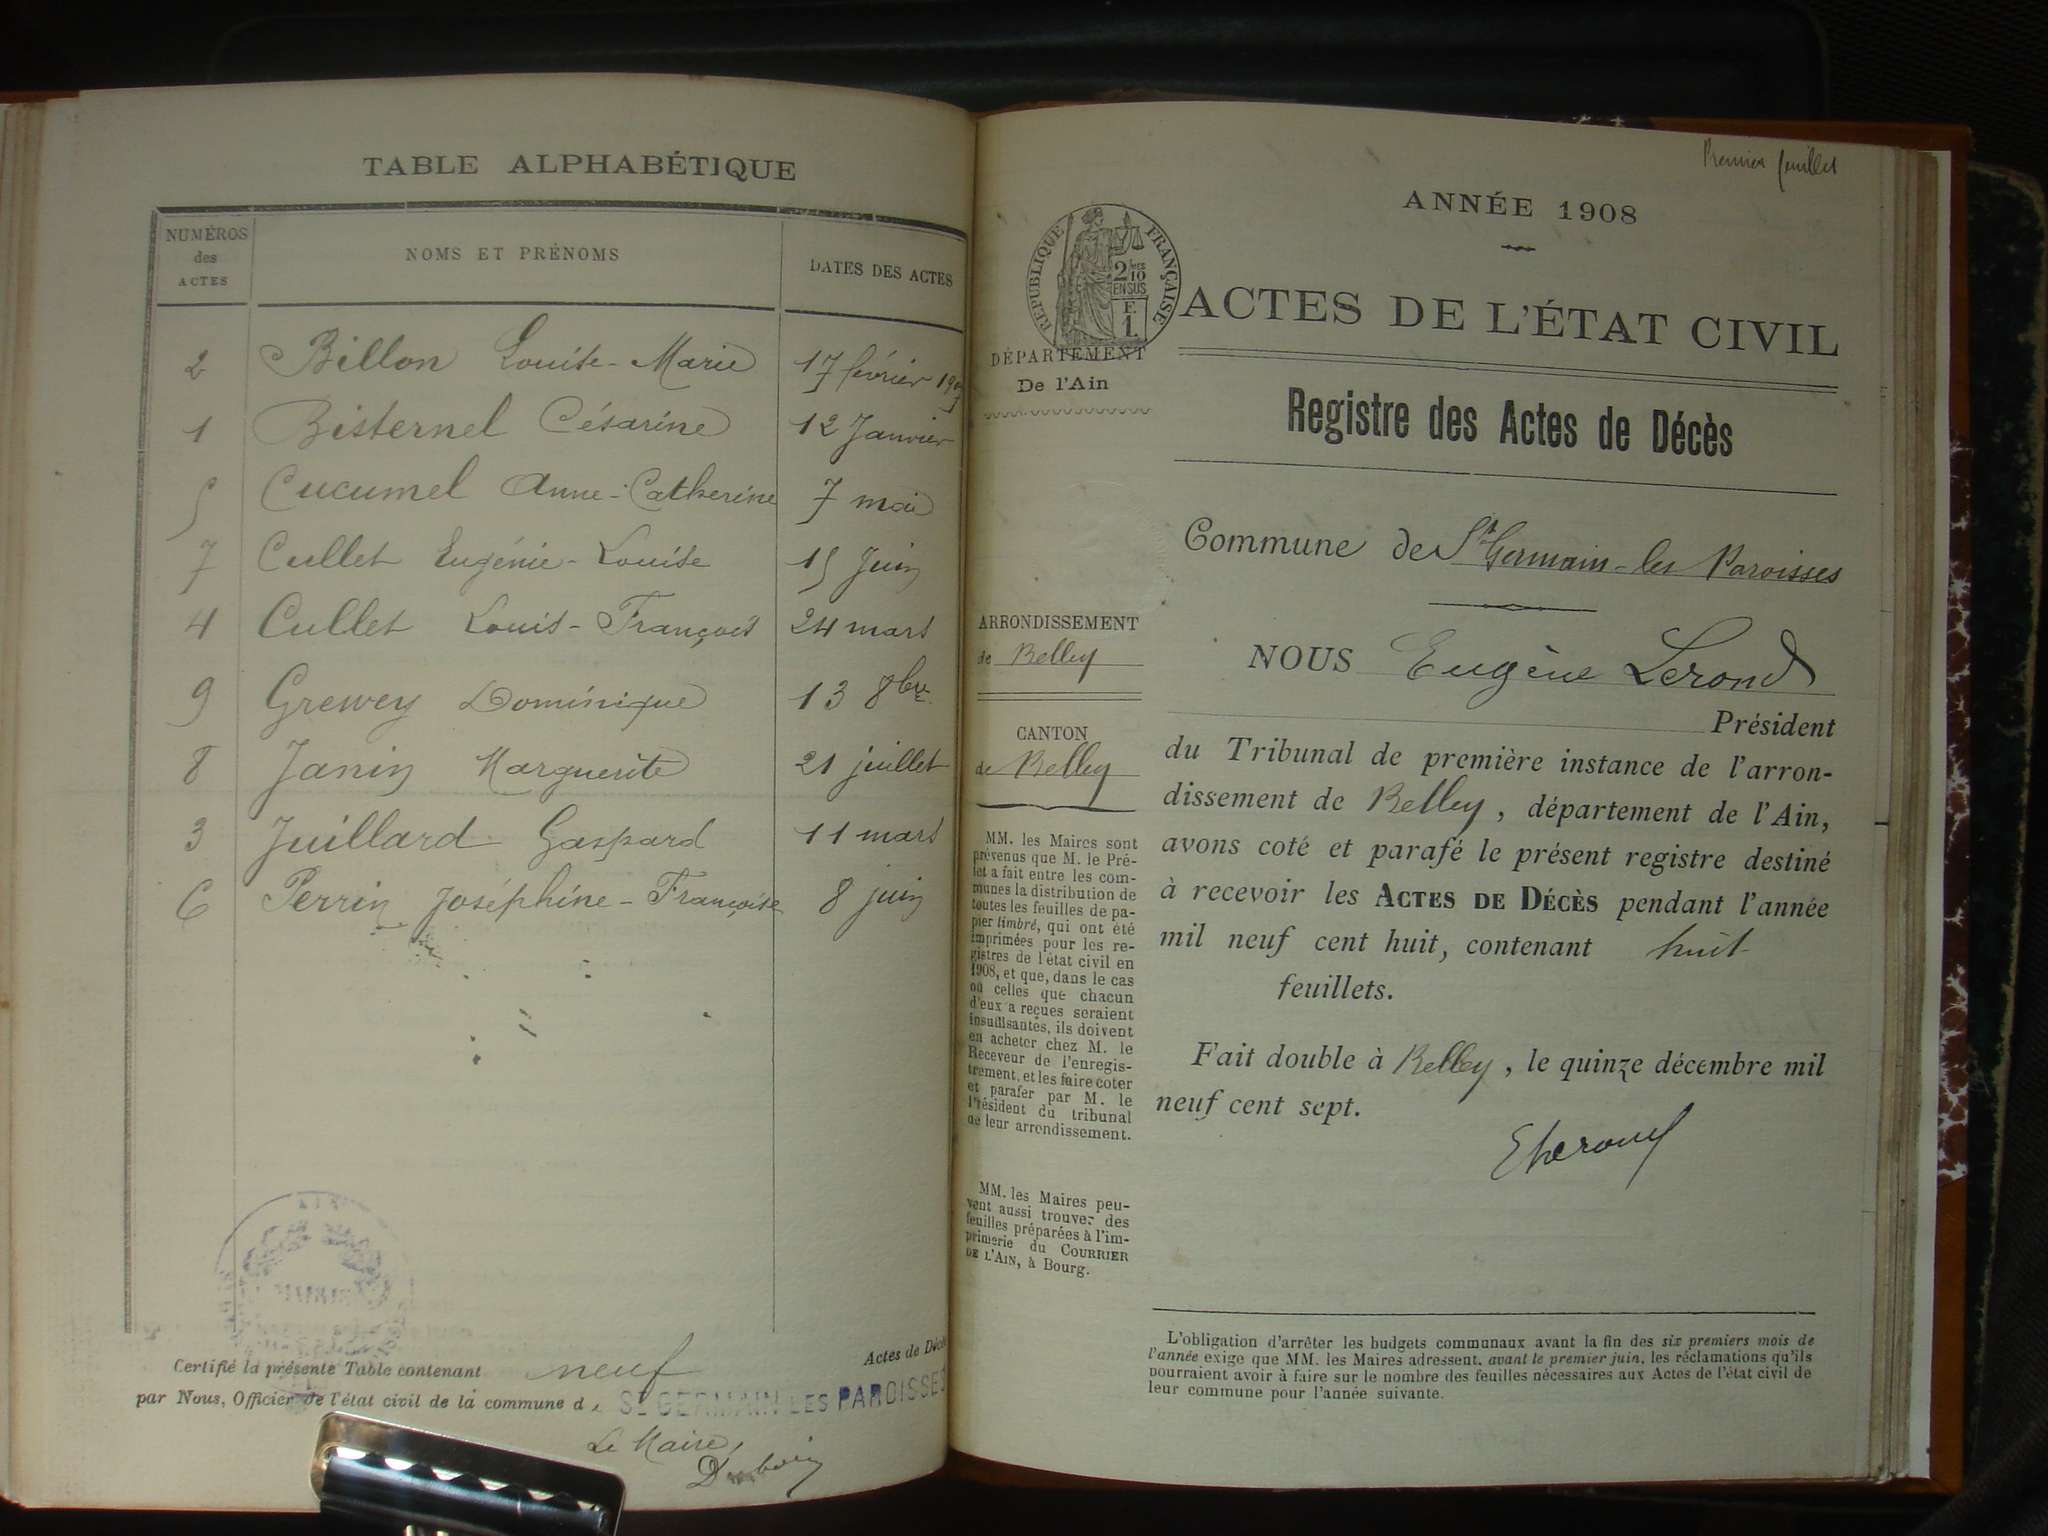 TABLE ALPHABÉTIQUE
NUMÉROS des ACTES
NOMS ET PRÉNOMS
DATES DES ACTES
2 Billon Louise-Marie 17 février 1907
1 Bisternel Césarine 12 Janvier
5 Cucumel Anne-Catherine 7 mai
7 Cullet Eugénie-Louise 15 Juin
4 Cullet Louis-François 24 mars
9 Grewey Dominique 13 8bre
8 Janin Marguerite 21 juillet
3 Juillard Gaspard 11 mars
6 Perrin Joséphine-Françoise 8 juin
Certifié la présente Table contenant neuf Actes de Décès
par Nous, Officier de l'état civil de la commune d ST GERMAIN LES PAROISSES
Le Maire,
Premier feuillet
ANNÉE 1908
RÉPUBLIQUE FRANÇAISE
2 10
EN SUS
E.
1
ACTES DE L'ÉTAT CIVIL
DÉPARTEMENT
De l'Ain
Registre des Actes de Décès
Commune de St Germain-les Paroisses
ARRONDISSEMENT
de Belley
CANTON
de Belley
MM. les Maires sont
prévenus que M. le Pré-
fet a fait entre les com-
munes la distribution de
toutes les feuilles de pa-
pier timbré, qui ont été
imprimées pour les re-
gistres de l'état civil en
1908, et que, dans le cas
où celles que chacun
d'eux a reçues seraient
insuffisantes, ils doivent
en acheter chez M. le
Receveur de l'enregis-
trement, et les faire coter
et parafer par M. le
Président du tribunal
de leur arrondissement.
MM. les Maires peu-
vent aussi trouver des
feuilles préparées à l'im-
primerie du COURRIER
DE L'AIN, à Bourg.
NOUS Eugène Lerond
Président
du Tribunal de première instance de l'arron-
dissement de Belley, département de l'Ain,
avons coté et parafé le présent registre destiné
à recevoir les ACTES DE DÉCÈS pendant l'année
mil neuf cent huit, contenant huit
feuillets.
Fait double à Belley, le quinze décembre mil
neuf cent sept.
L'obligation d'arrêter les budgets communaux avant la fin des six premiers mois de
l'année exige que MM. les Maires adressent, avant le premier juin, les réclamations qu'ils
pourraient avoir à faire sur le nombre des feuilles nécessaires aux Actes de l'état civil de
leur commune pour l'année suivante.